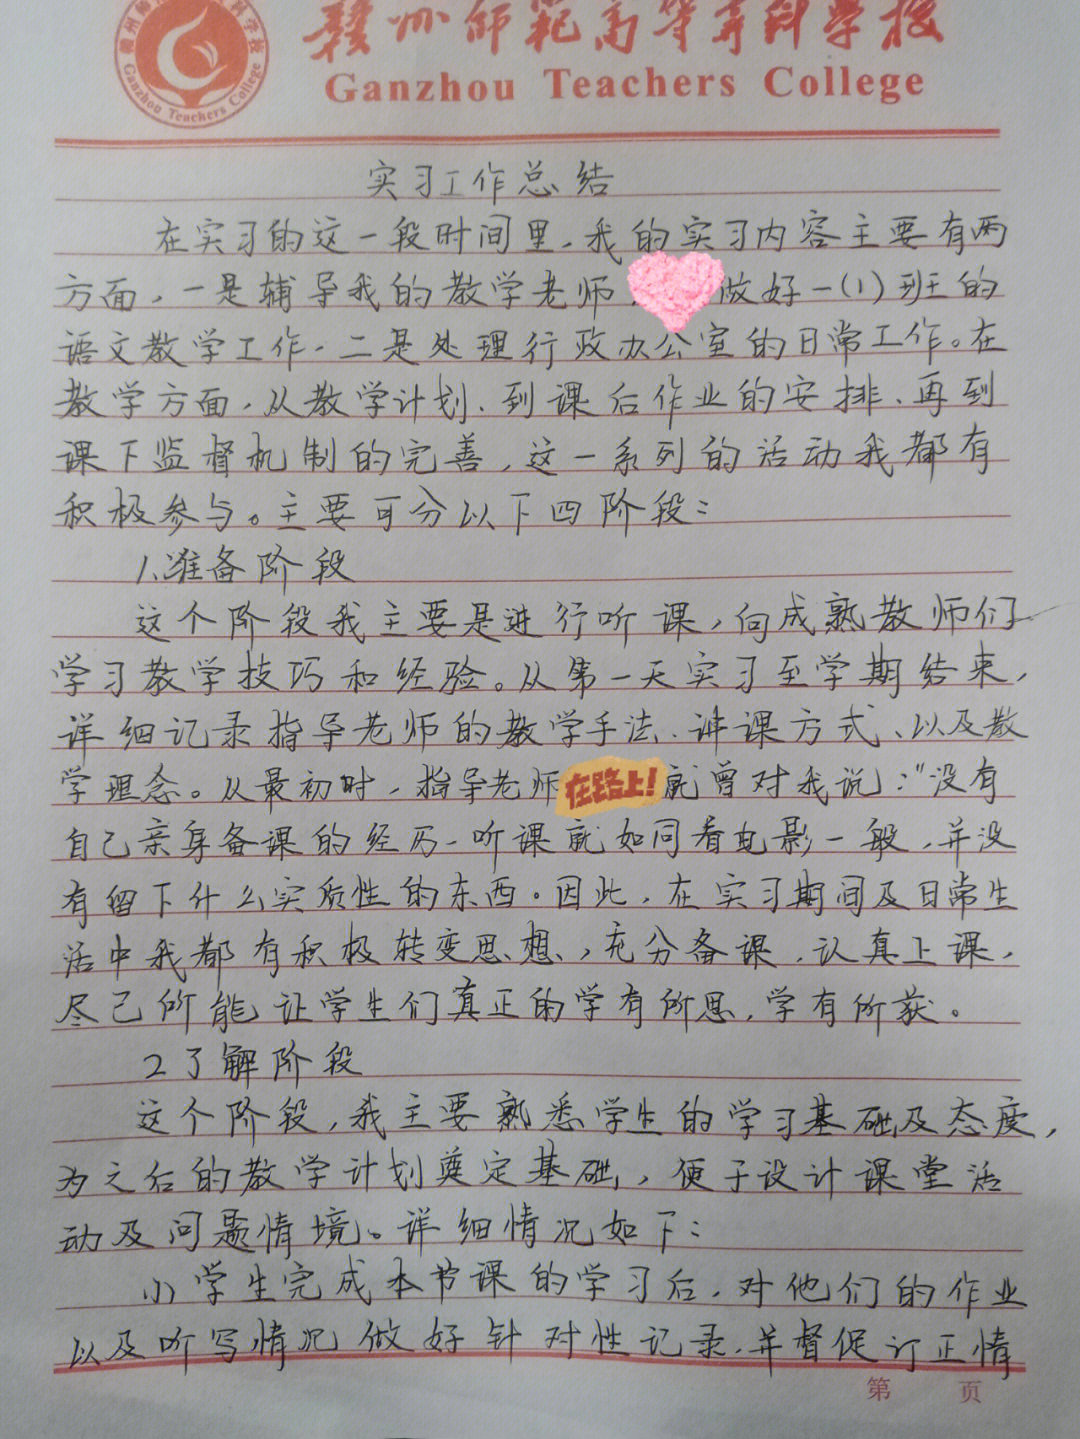 赣州师范高等专科学校
Ganzhou Teachers College
Ganzhou Teachers College
实习工作总结
在实习的这一段时间里，我的实习内容主要有两
方面，一是辅导我的教学老师 做好一(1)班的
语文教学工作，二是处理行政办公室的日常工作。在
教学方面，从教学计划、到课后作业的安排、再到
课下监督机制的完善，这一系列的活动我都有
积极参与。主要可分以下四阶段：
1.准备阶段
这个阶段我主要是进行听课，向成熟教师们
学习教学技巧和经验。从第一天实习至学期结束，
详细记录指导老师的教学手法、讲课方式、以及教
学理念。从最初时，指导老师 在路上! 就曾对我说：“没有
自己亲身备课的经历，听课就如同看电影一般，并没
有留下什么实质性的东西。因此，在实习期间及日常生
活中我都有积极转变思想，充分备课，认真上课，
尽己所能让学生们真正的学有所思，学有所获。
2.了解阶段
这个阶段，我主要熟悉学生的学习基础及态度，
为之后的教学计划奠定基础，便于设计课堂活
动及问题情境。详细情况如下：
(1)学生完成本节课的学习后，对他们的作业
以及听写情况做好针对性记录，并督促订正情
第 页